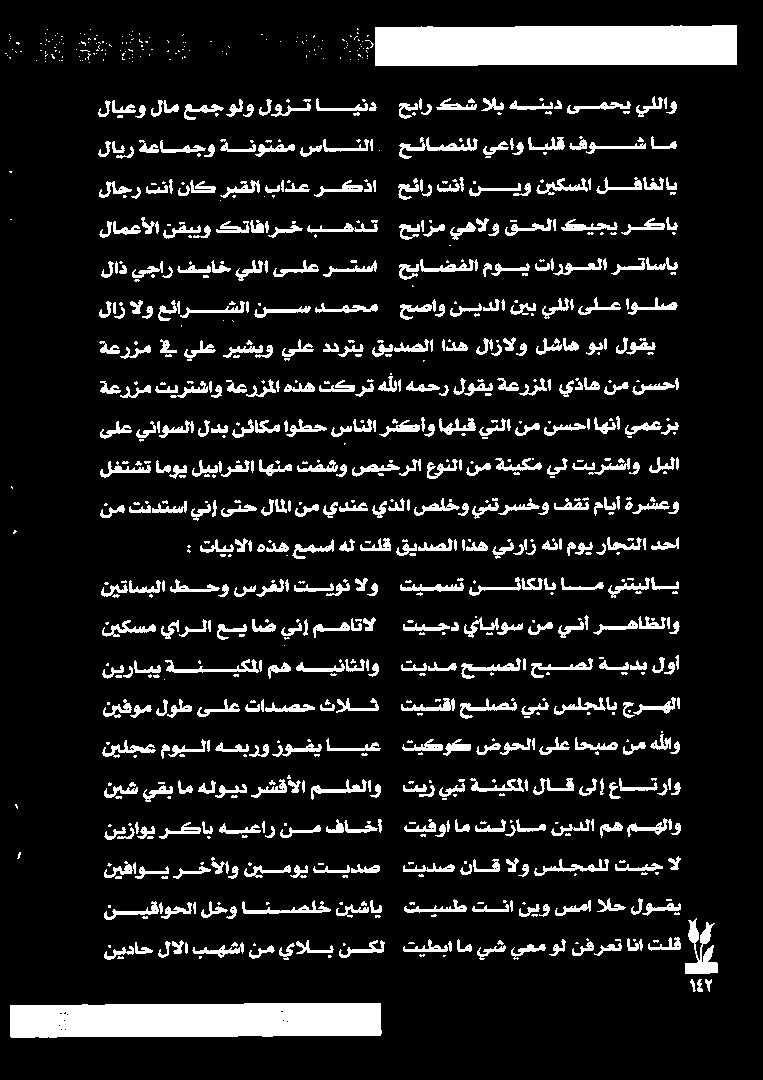 واللي يحمي دينه بلا شك رابح دنيا تزول ولو جمع مال وعيال
ما شوف قلبا واعي للنصائح الناس مفتونة وجماعة ريال
يالغافل المسكين وين أنت رائح اذكر عذاب القبر كان أنت رجال
باكر يجيك الحق ولاهي مزايح تذهب خرافاتك ويبقن الأعمال
ياساتر العورات يوم الفضايح استر على اللي خايف راجي ذال
صلوا على اللي بين الدين واضح محمد سن الشرائع ولا زال
يقول ابو هاشل ولازال هذا الصديق يتردد علي ويشير علي في مزرعة
احسن من هاذي المزرعة يقول رحمه الله تركت هذه المزرعة واشتريت مزرعة
بزعمي أنها احسن من التي قبلها وأكثر الناس حطوا مكائن بدل السواني على
البل واشتريت لي مكينة من النوع الرخيص وشفت منها الغرابيل يوما تشتغل
وعشرة أيام تقف وخسرتني وخلص الذي عندي من المال حتى إني استدنت من
احد التجار يوم انه زارني هذا الصديق قلت له اسمع هذه الابيات :
ياليتني ما بالكائن تسميت ولا نويت الغرس وحط البساتين
والظاهر أني من سواياي دجيت لاتاهم إني ضايع الراي مسكين
أول بدية لصبح الصبح مديت والثانيه هم المكينة يبارين
الهرج بالمجلس نبي نصلح اقتيت ثلاث حصدات على طول موفين
والله من صبحا على الحوض كوكيت عيا يفوز وربعه اليوم عجلين
وارتاع إلى قال المكينة تبي زيت والعلم الأقشر ديوله ما بقي شين
والهم هم الدين مازلت ما اوفيت أخاف من راعيه باكر يوازين
لا جيت للمجلس ولا قان صديت صديت يومين والأخر يوافين
يقول حلا امس وين انت طسيت ياشين خلصنا وخل الحواقين
قلت انا تعرفن لو معي شي ما ابطيت لكن بلاي من اشهب الال حادين
١٤٢